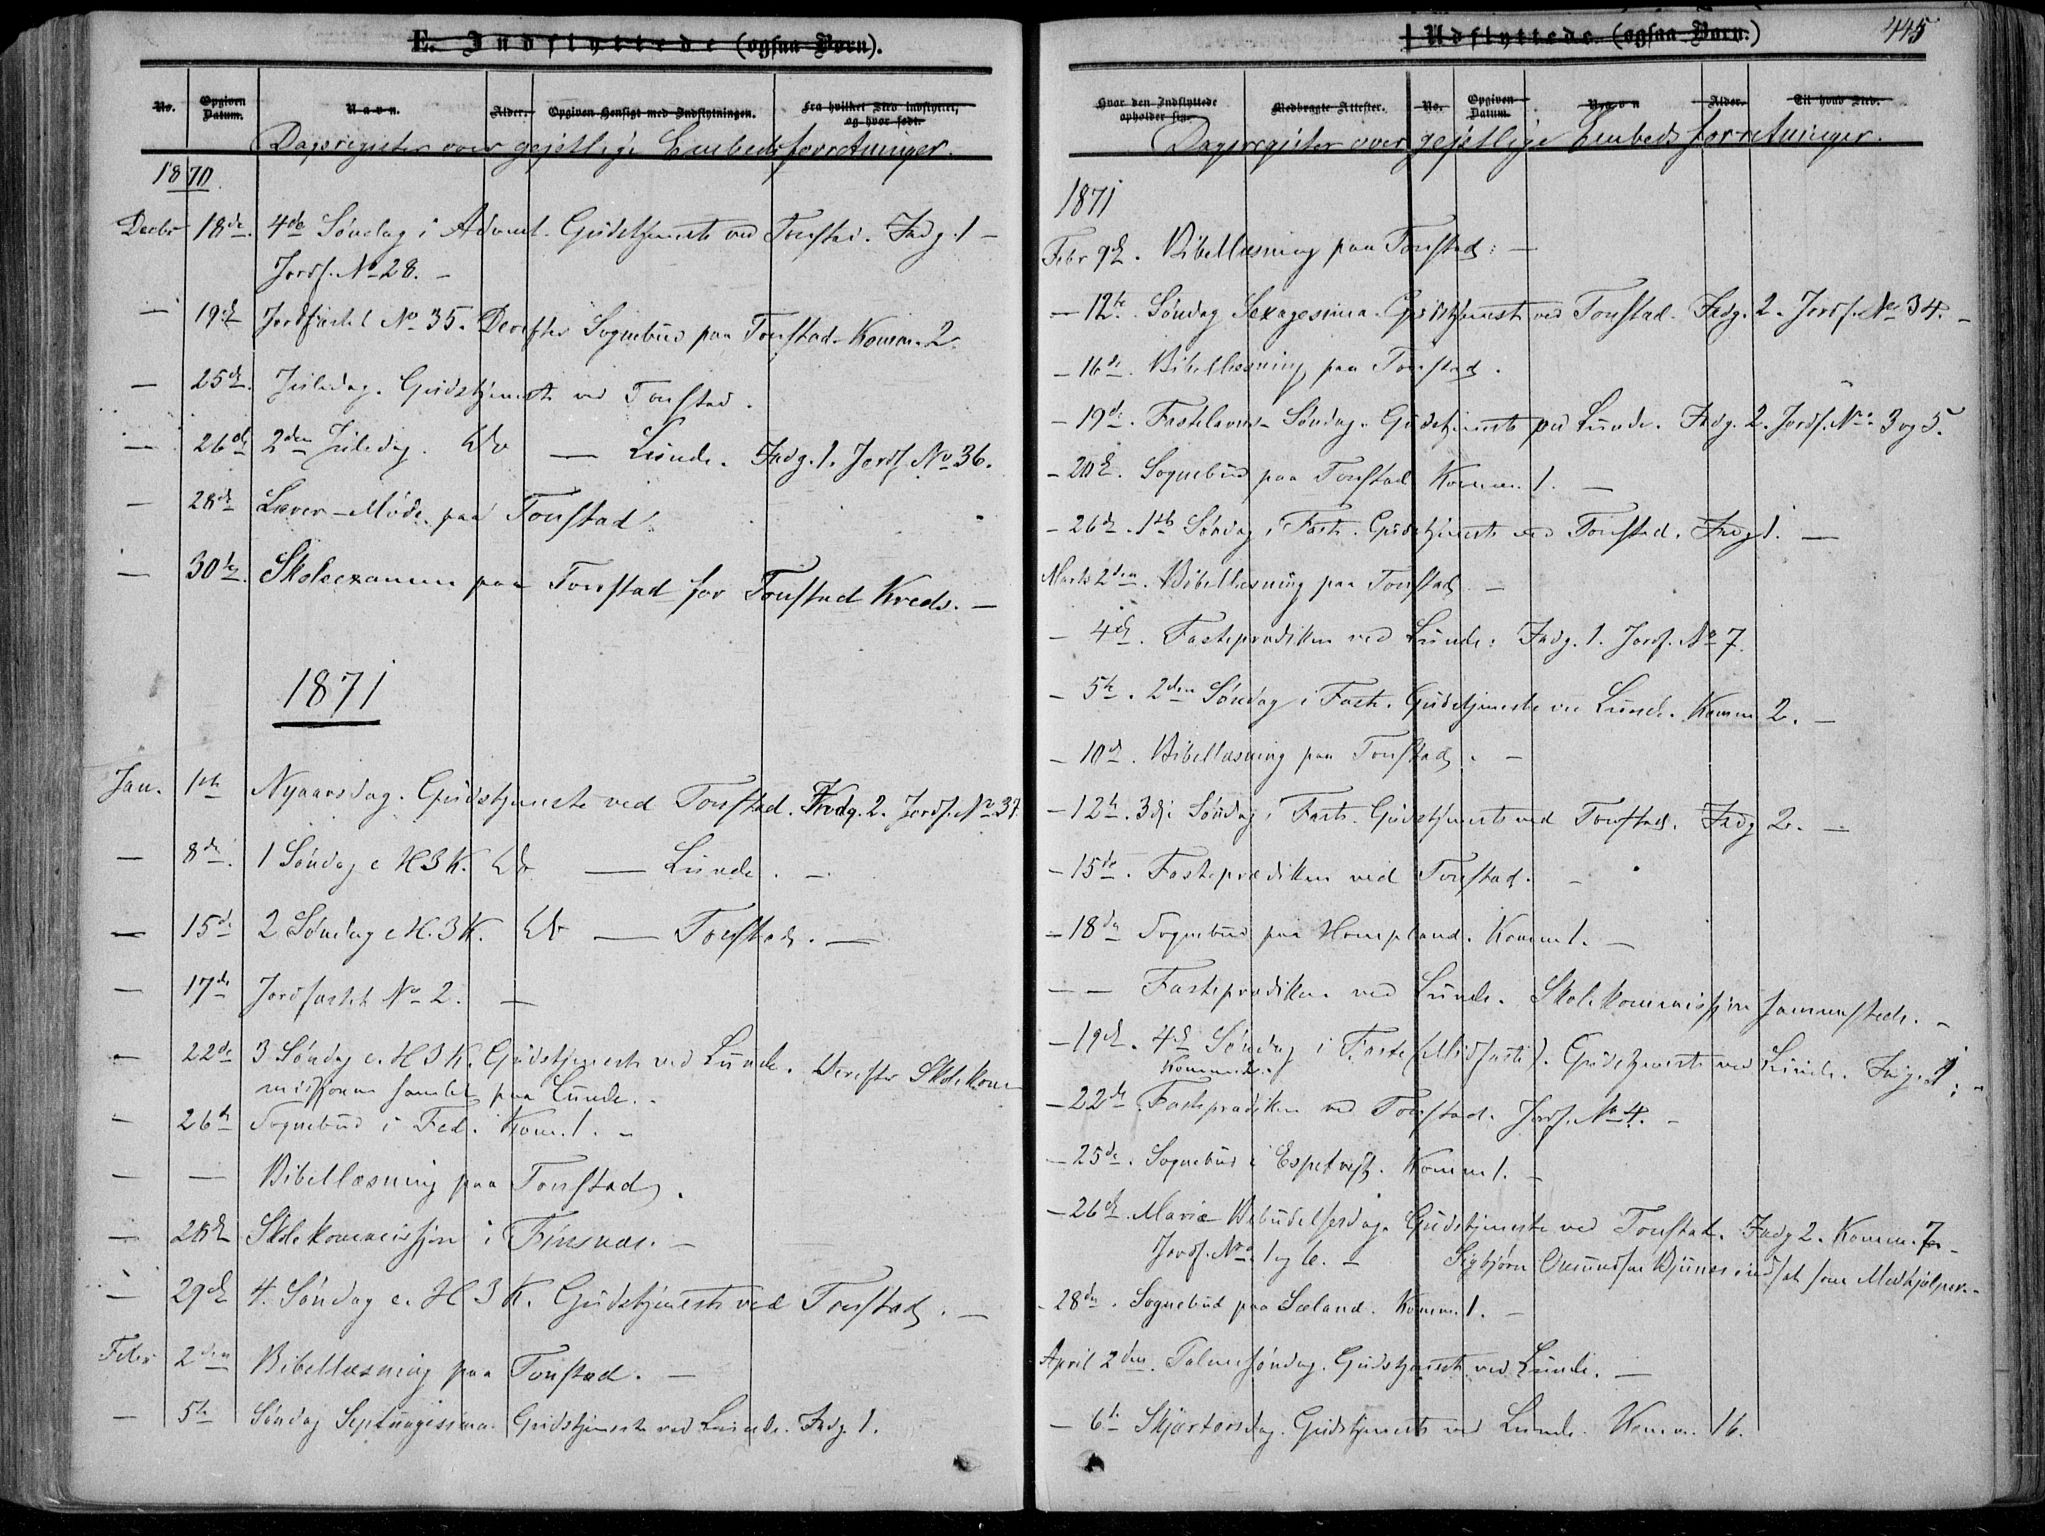 E. Indflyttede (ogsaa Børn).
No. Opgiven Datum. Navn. Alder. Opgiven Hensigt med Indflytningen. Fra hvilket Sted indflyttet, og hvor født.
Dagsregister over gejstlige Embedsforretninger.
1870
Decbr 18de. 4de Søndag i Advent. Gudstjeneste ved Tonstad. Indg. 1 –
Jordf. No 28. –
— 19de Jordfæstet No 35. Derefter Sognebud paa Tonstad. Komm. 2.
— 25de. Juledag. Gudstjeneste ved Tonstad.
— 26de 2den Juledag. Do — Lunde. Indg. 1. Jordf. No 36.
— 28de Lærer-Møde paa Tonstad.
— 30te. Skoleexamen paa Tonstad for Tonstad Kreds. –
1871
Jan. 1ste Nyaarsdag. Gudstjeneste ved Tonstad. Indg. 2. Jordf. No 37.
— 8de. 1 Søndag e H 3 K. Do — Lunde. –
— 15de 2 Søndag e H. 3 K. Do — Tonstad. —
— 17de Jordfæstet No 2. —
— 22de 3 Søndag e. H 3 K. Gudstjeneste ved Lunde. Derefter Skolekom
missionen samlet paa Lunde. –
— 26de Sognebud i Fed. Kom. 1. –
— — Bibellæsning paa Tonstad.
— 28de Skolekommission i Finsnæs. –
— 29de 4. Søndag e. H 3 K. Gudstjeneste ved Tonstad. —
Febr 2den Bibellæsning paa Tonstad. —
— 5te Søndag Septuagesima. Gudstjeneste ved Lunde. Indg. 1.
Udflyttede. (ogsaa Børn.) 445
Hvor den Indflyttede opholder sig. Medbragte Attester. No. Opgiven Datum. Navn Alder. Til hvad Sted.
Dagsregister over gejstlige Embedsforretninger.
1871
Febr 9de. Bibellæsning paa Tonstad. —
— 12te. Søndag Sexagesima. Gudstjeneste ved Tonstad. Indg. 2. Jordf. No 34. –
— 16de. Bibellæsning paa Tonstad.
— 19de. Fastelavns-Søndag. Gudstjeneste ved Lunde. Indg. 2. Jordf. No 3 og 5.
— 20de. Sognebud paa Tonstad Komm. 1. —
— 26de. 1ste Søndag i Faste. Gudstjeneste ved Tonstad. Indg 1. —
Marts 2den. Bibellæsning paa Tonstad. —
— 4de. Fasteprædiken ved Lunde. Indg. 1. Jordf. No 7.
— 5te. 2den Søndag i Faste. Gudstjeneste ved Lunde. Komm 2. —
— 10de. Bibellæsning paa Tonstad. —
— 12te. 3die Søndag i Faste. Gudstjeneste ved Tonstad. Indg 2. —
— 15de. Fasteprædiken ved Tonstad. –
— 18de Sognebud paa Hompland. Komm 1. —
— — Fasteprædiken ved Lunde. Skolekommission sammesteds. –
— 19de. 4de Søndag i Faste (Midfaste). Gudstjeneste ved Lunde. Indg. 1. –
— 22de Fasteprædiken ved Tonstad. Jordf. No 4. –
— 25de. Sognebud i Espetvejt. Komm 1. –
— 26de Mariæ Bebudelsesdag. Gudstjeneste ved Tonstad. Indg 2. Komm. 7 –
Jordf. No 1 og 6. – Sigbjørn Omundsen indsat som Medhjælper. –
— 28de. Sognebud paa Sæland. Komm 1. —
April 2den. Palmesøndag. Gudstjeneste ved Lunde. —
— 6te Skjærtorsdag. Gudstjeneste ved Lunde. Komm. 16.